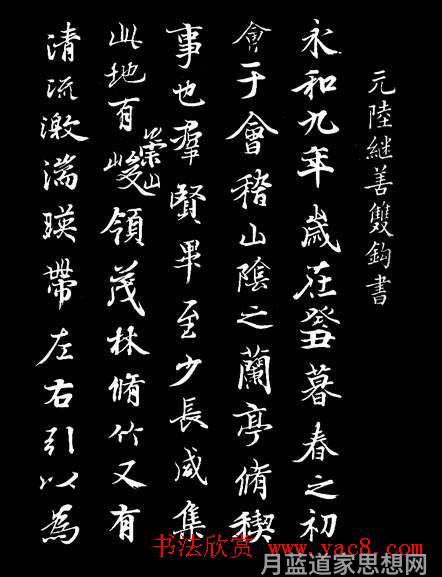 元陸継善雙鈎書
永和九年歲在癸丑暮春之初
會于會稽山陰之蘭亭脩稧
事也羣賢畢至少長咸集
此地有崇山峻領茂林脩竹又有
清流激湍暎帶左右引以為
书法欣赏 www.yac8.com
月蓝道家思想网